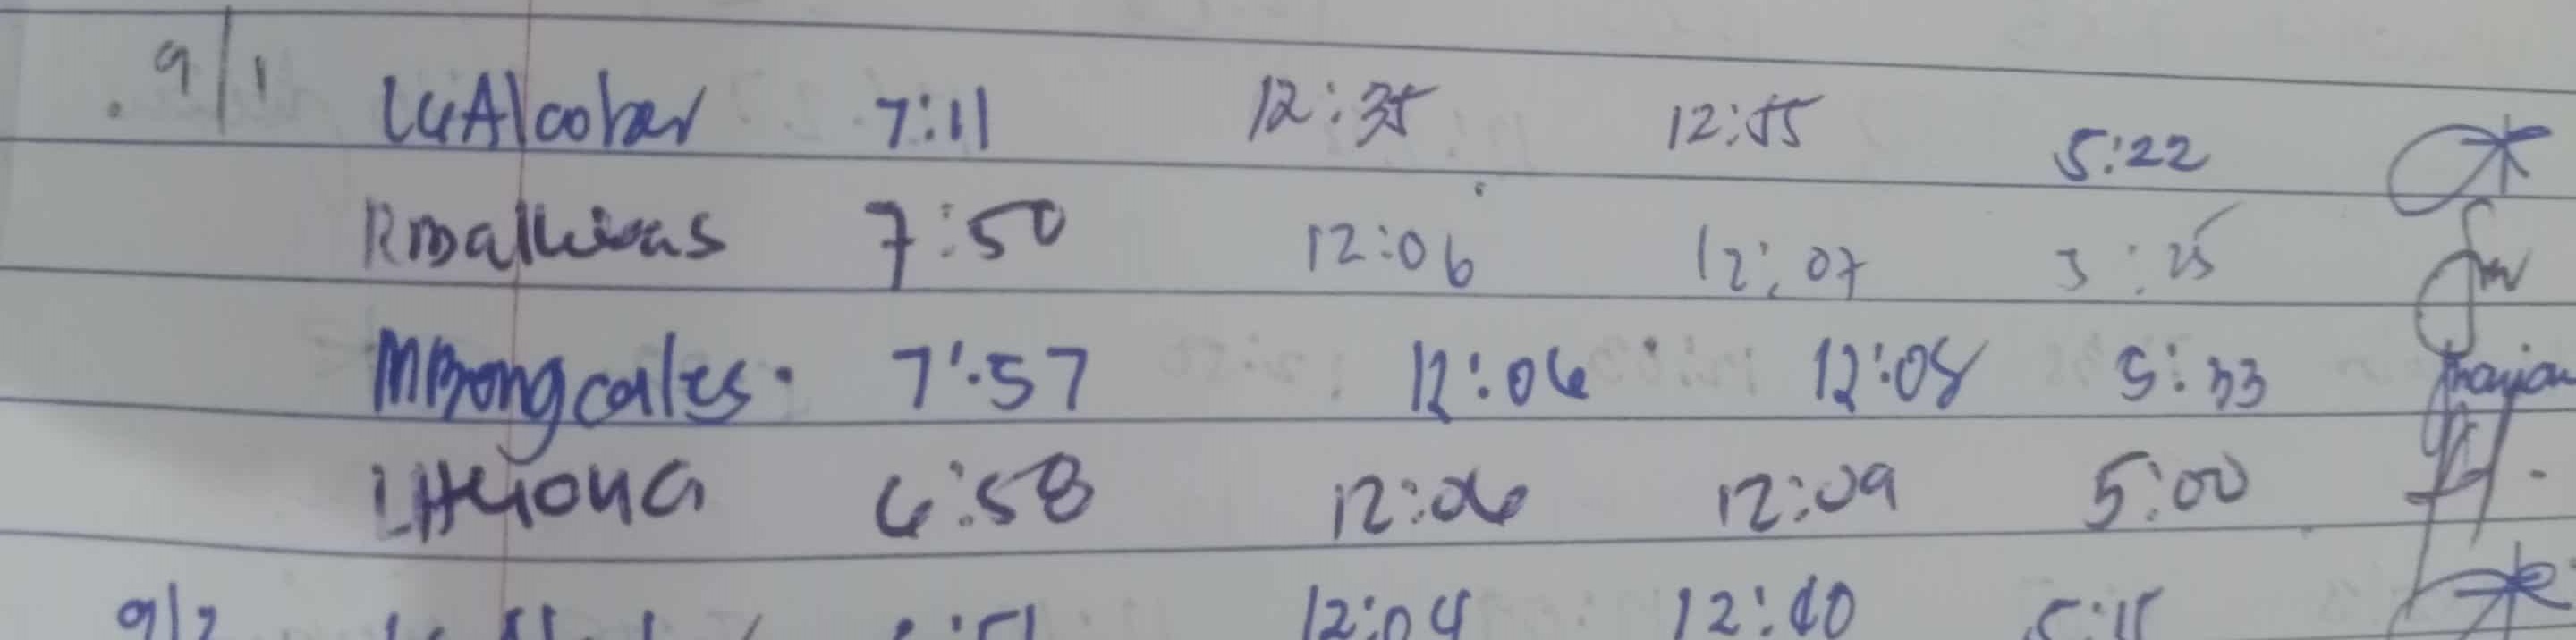 9/1 LGAlcober 7:11 12:35 12:55 5:22
7:50 12:06 12:07 3:25
MBongcales. 7:57 12:06 12:08 5:33
6:58 12:06 12:09 5:00
9/2 12:04 12:10